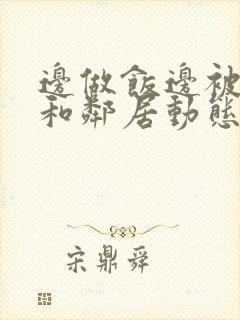 邊做飯邊被
和鄰居動態
宋鼎舜